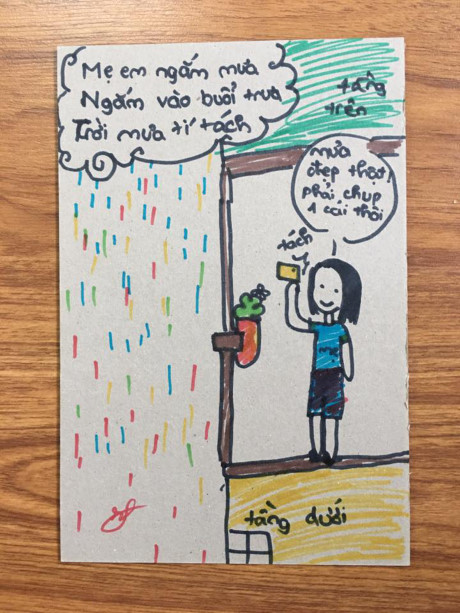 Mẹ em ngắm mưa
Ngắm vào buổi trưa
Trời mưa tí tách
tầng
trên
mưa
đẹp thật
phải chụp
1 cái thôi
tách
tầng dưới